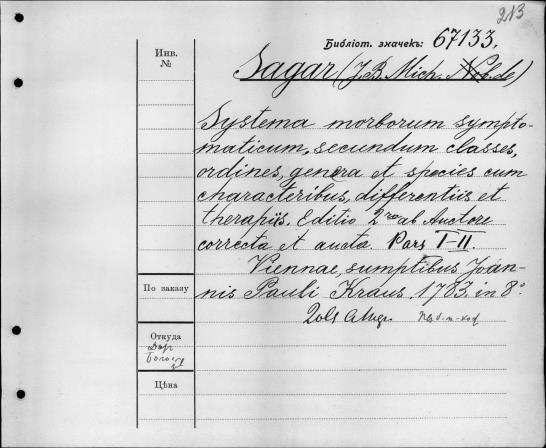 213
Библіот. значекъ: 67133.
Инв.
№
Sagar (J. B. Mich. de)
Systema morborum sympto-
maticum, secundum classes,
ordines, genera et species cum
characteribus, differentiis et
therapiis. Editio 2 ab Auctore
correcta et aucta. Pars I-II.
Viennae, sumptibus Joan-
nis Pauli Kraus 1783. in 8°
По заказу
Откуда
Дар
Цѣна